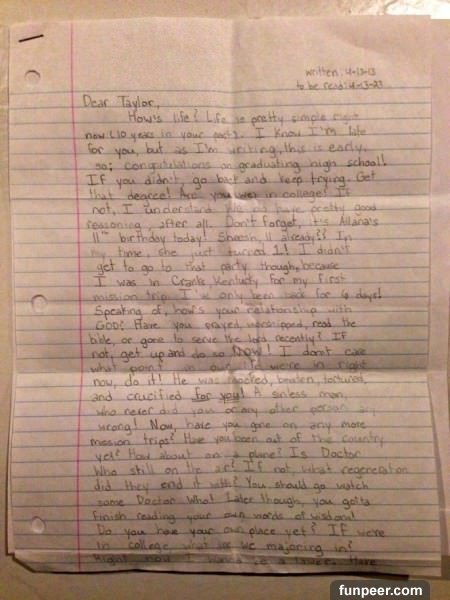 written: 4-13-13
to be read: 4-13-23
Dear Taylor,
How's life? Life is pretty simple right
now (10 years in your past). I know I'm late
for you, but as I'm writing, this is early.
so; congratulations on graduating high school!
If you didn't, go back and keep trying. Get
that degree! Are you in college? If
not, I understand. We have pretty good
reasoning, after all. Don't forget, it's Allana's
11th birthday today! Sheesh, 11 already?! In
my time, she just turned 1! I didn't
get to go to that party though, because
I was in Cranks Kentucky for my first
mission trip. I've only been back for 6 days!
Speaking of, how's your relationship with
GOD? Have you prayed, worshipped, read the
bible, or gone to serve the lord recently? If
not, get up and do so NOW! I don't care
what point in our life we're in right
now, do it! He was mocked, beaten, tortured,
and crucified for you! A sinless man,
who never did you or any other person any
wrong! Now, have you gone on any more
mission trips? Have you been out of the country
yet? How about on a plane? Is Doctor
Who still on the air? If not, what regeneration
did they end it with? You should go watch
some Doctor Who! Later though, you gotta
finish reading your own words of wisdom!
Do you have your own place yet? If we're
in college what are we majoring in?
Right now I wanna be a lawer. Have
funpeer.com